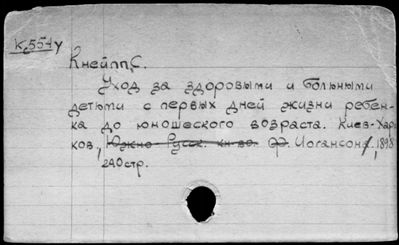 К.554у
Кнейпп, С.
Уход за здоровыми и больными
детьми с первых дней жизни ребен-
ка до юношеского возраста. Киев-Харь-
ков, Южно-Русск. кн-во. Ф. Иогансон, 1898
240стр.